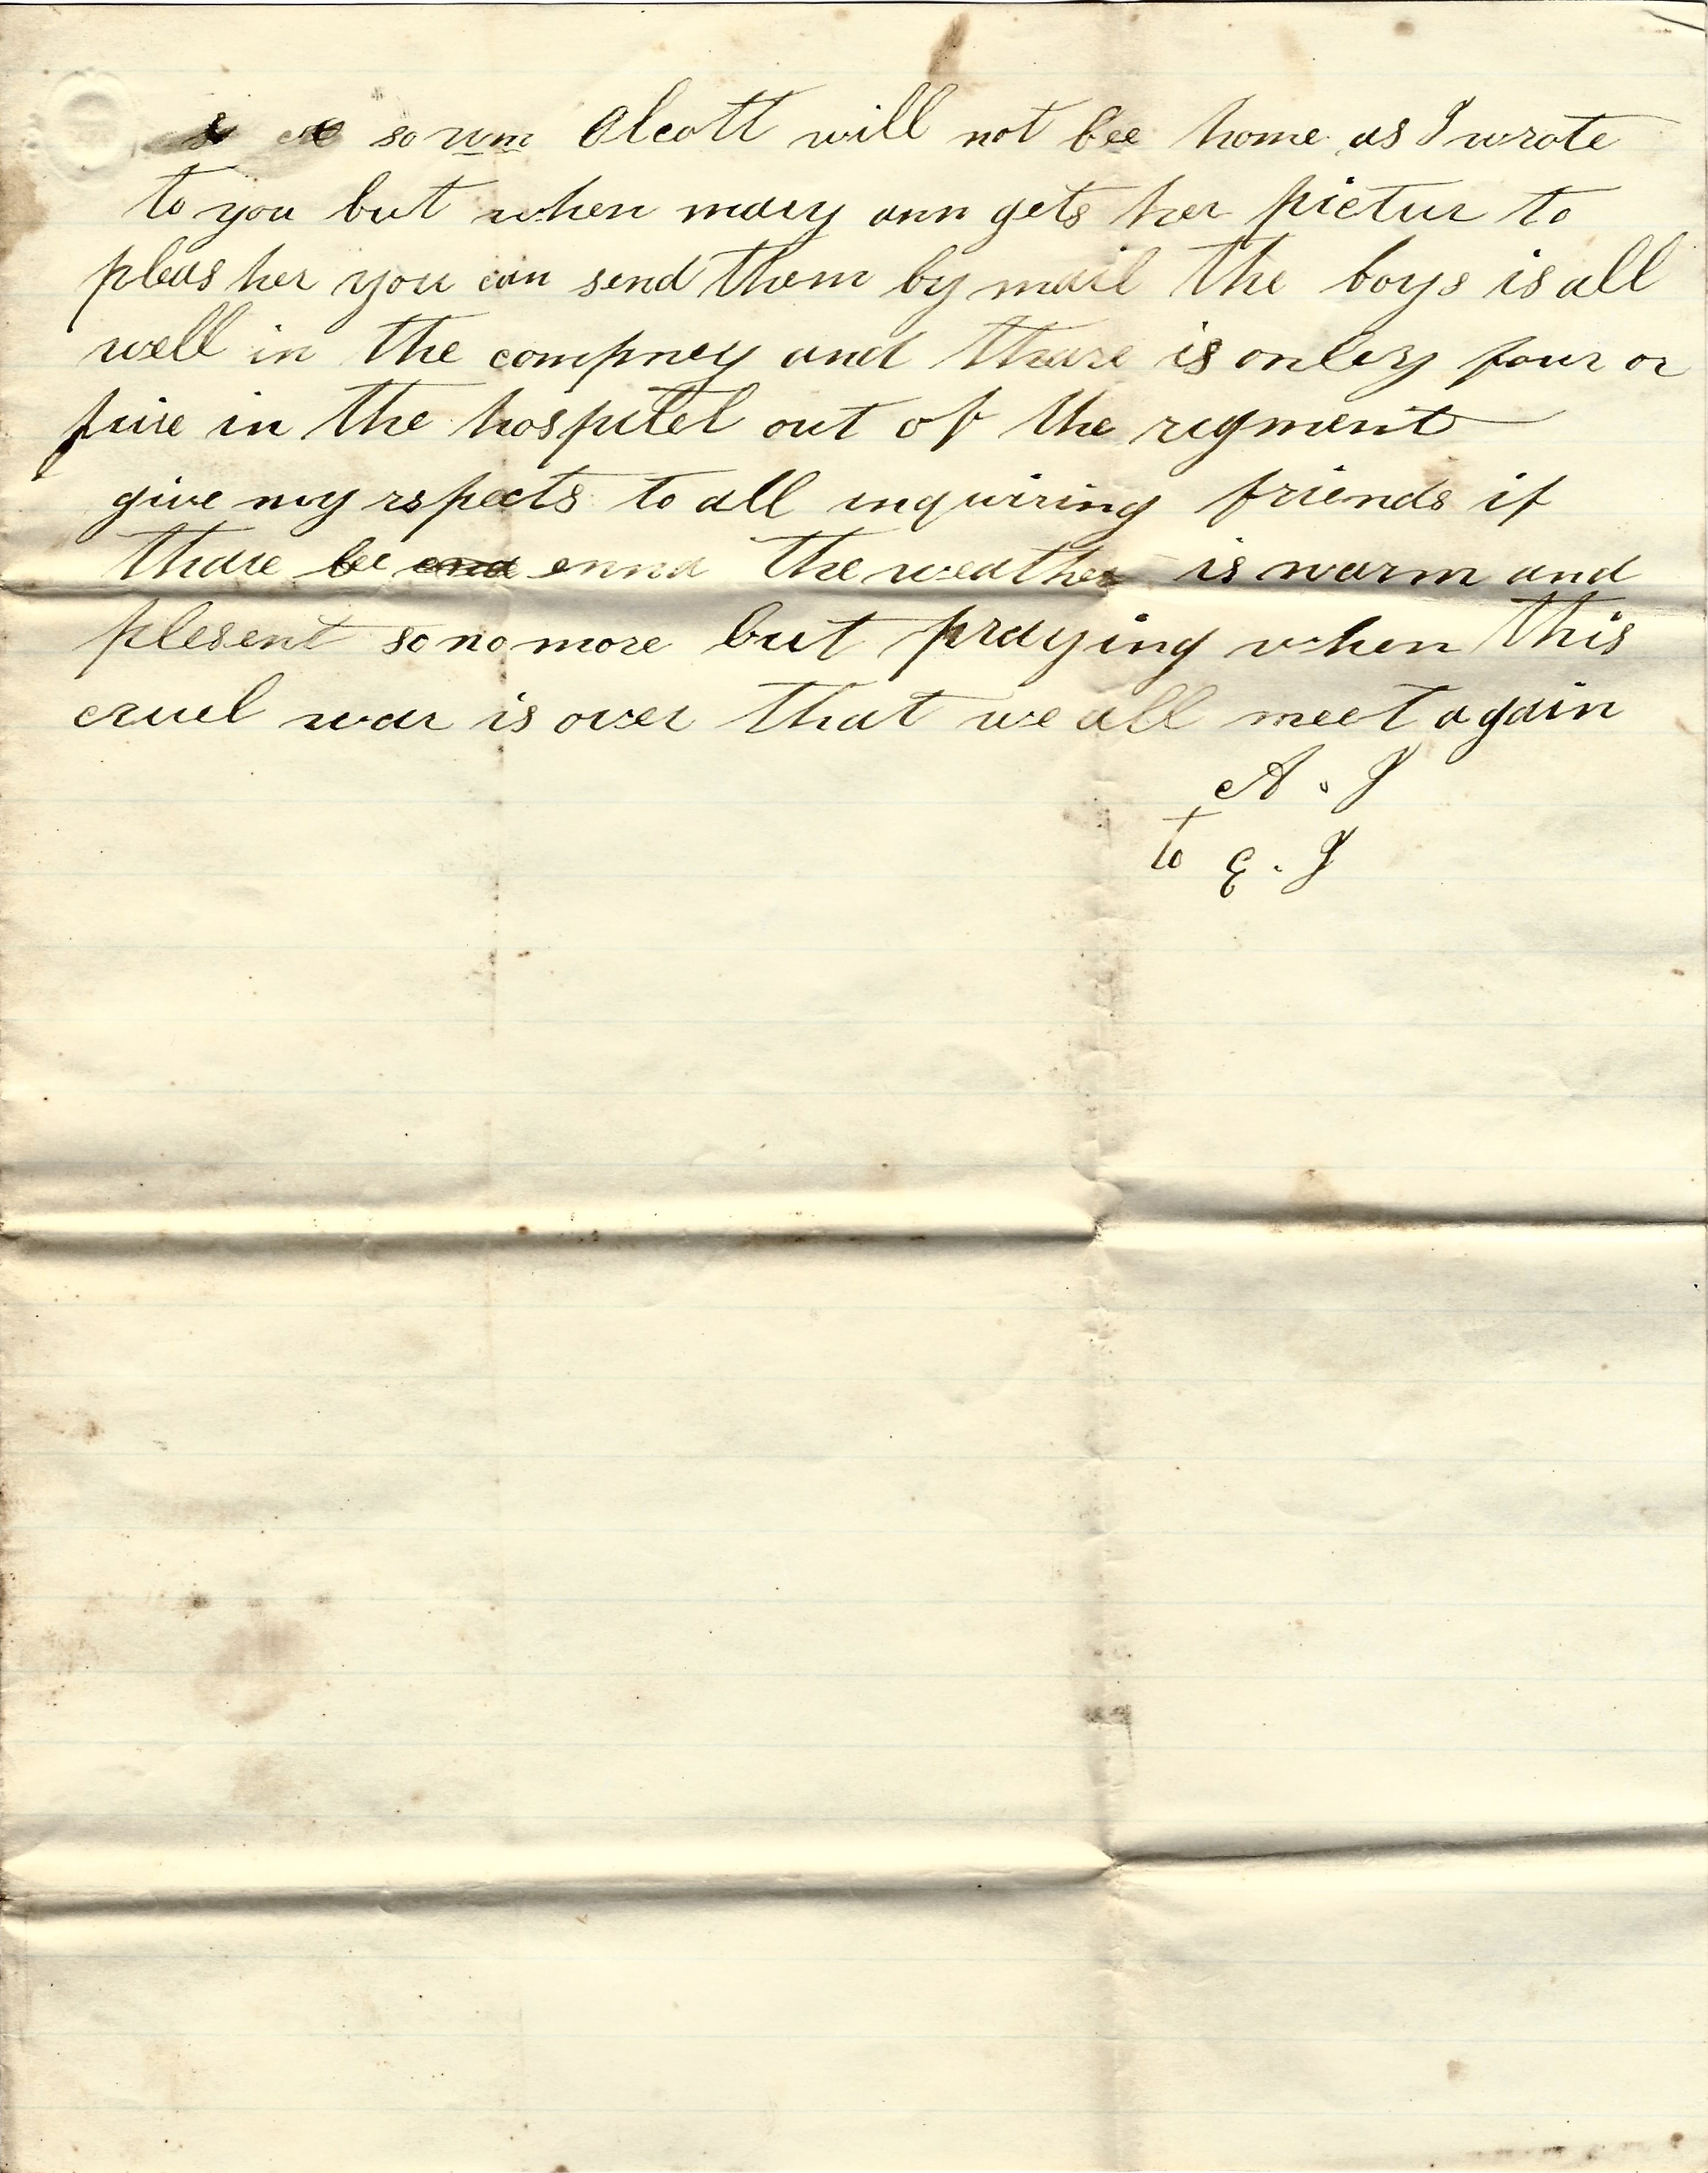 so wm Olcott will not bee home as I wrote
to you but when mary ann gets her pictur to
pleas her you can send them by mail the boys is all
well in the compney and thare is onley four or
five in the hospitel out of the regment
give my rspects to all inquiring friends if
thare be end ennd the weather is warm and
plesent so no more but praying when this
cruel war is over that we all meet again
A. J
to E. J